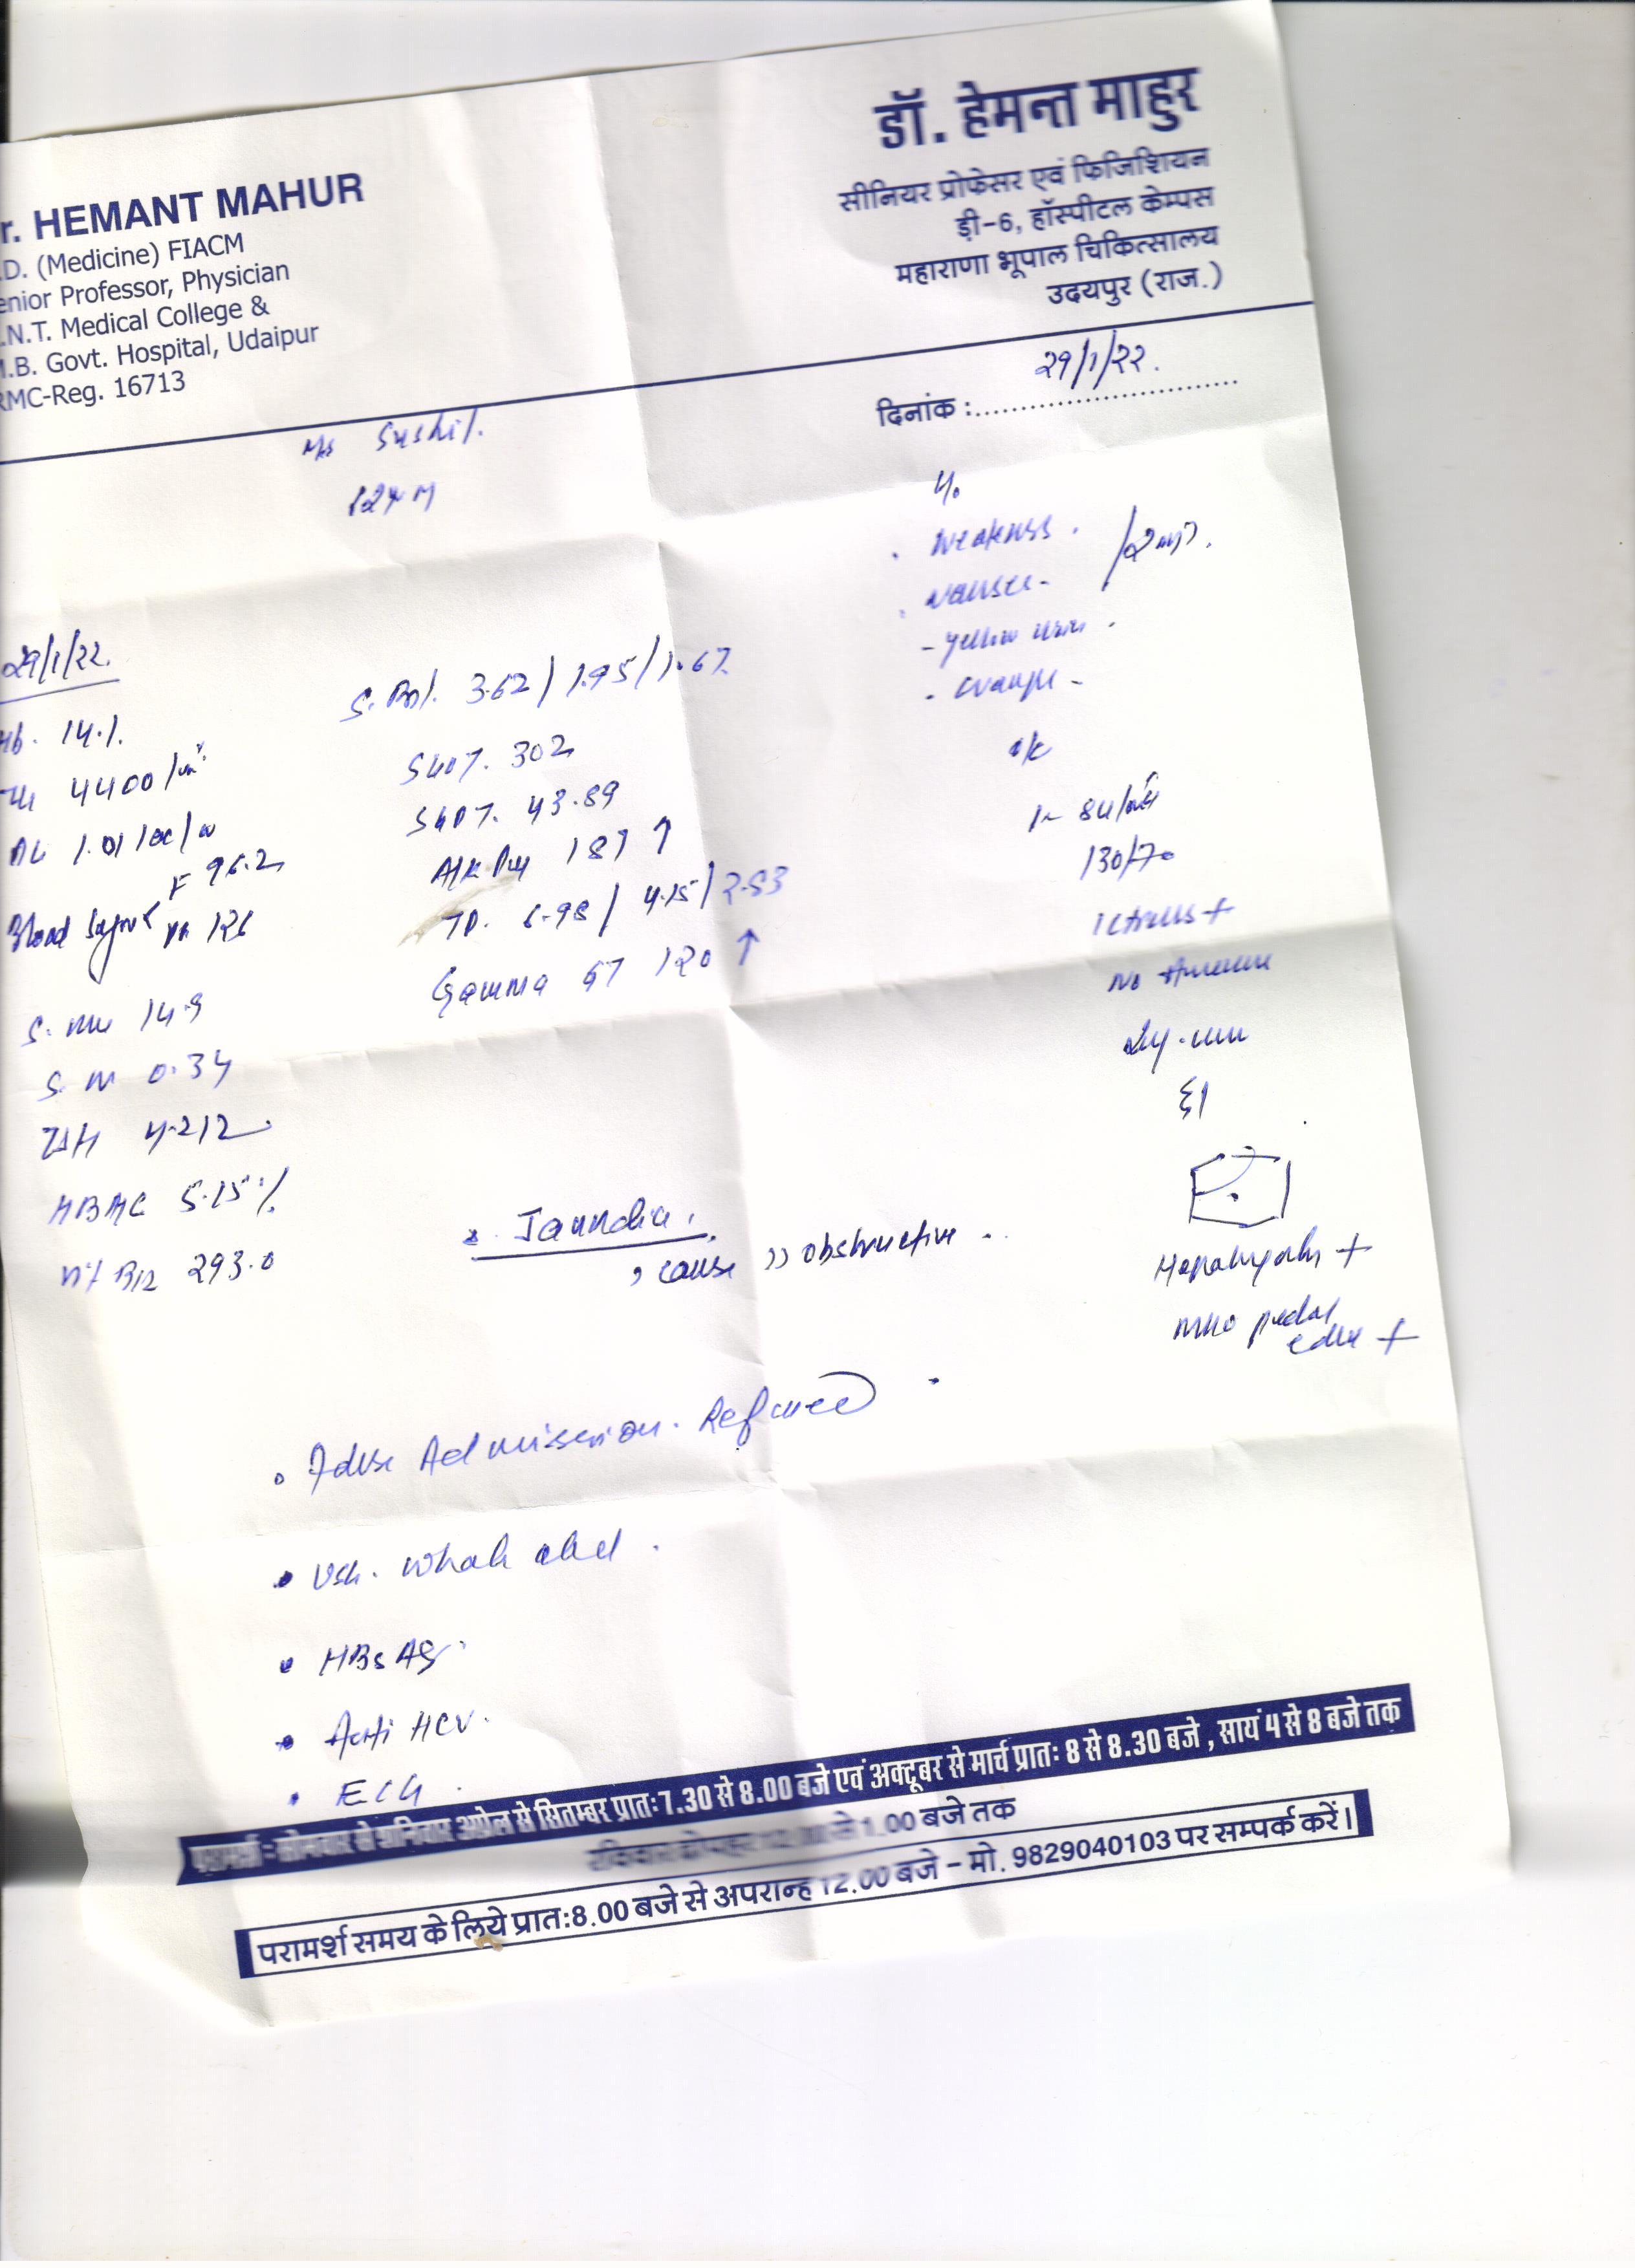 r. HEMANT MAHUR
.D. (Medicine) FIACM
enior Professor, Physician
.N.T. Medical College &
.B. Govt. Hospital, Udaipur
RMC-Reg. 16713
डॉ. हेमन्त माहुर
सीनियर प्रोफेसर एवं फिजिशियन
ड़ी-6, हॉस्पीटल केम्पस
महाराणा भूपाल चिकित्सालय
उदयपुर (राज.)
दिनांक : 29/1/22.
Sushil.
Weakness.
Nausea -
- Yellow urine.
84/
130/70
Icterus +
Hepatomegaly +
pedal
+
29/1/22.
Hb. 14.1.
4400/
Blood Sugar F 96.2
126
S. 14.9
S. 0.34
4.212
5.15%
Vit B12 293.0
S. Bil. 3.62 / 1.95 / 1.67
SGOT. 302
43.89
187 ↑
TP. 6.98 / 4.15 / 2.83
Gamma GT 120 ↑
Jaundice.
? cause >> obstructive -
Adv Admission. Refused
USG. Whole abd.
HBsAg.
Anti HCV.
ECG.
परामर्श : सोमवार से शनिवार अप्रेल से सितम्बर प्रातः 7.30 से 8.00 बजे एवं अक्टूबर से मार्च प्रातः 8 से 8.30 बजे, सायं 4 से 8 बजे तक
रविवार दोपहर 12.00 से 1.00 बजे तक
परामर्श समय के लिये प्रातः 8.00 बजे से अपरान्ह 12.00 बजे - मो. 9829040103 पर सम्पर्क करें।